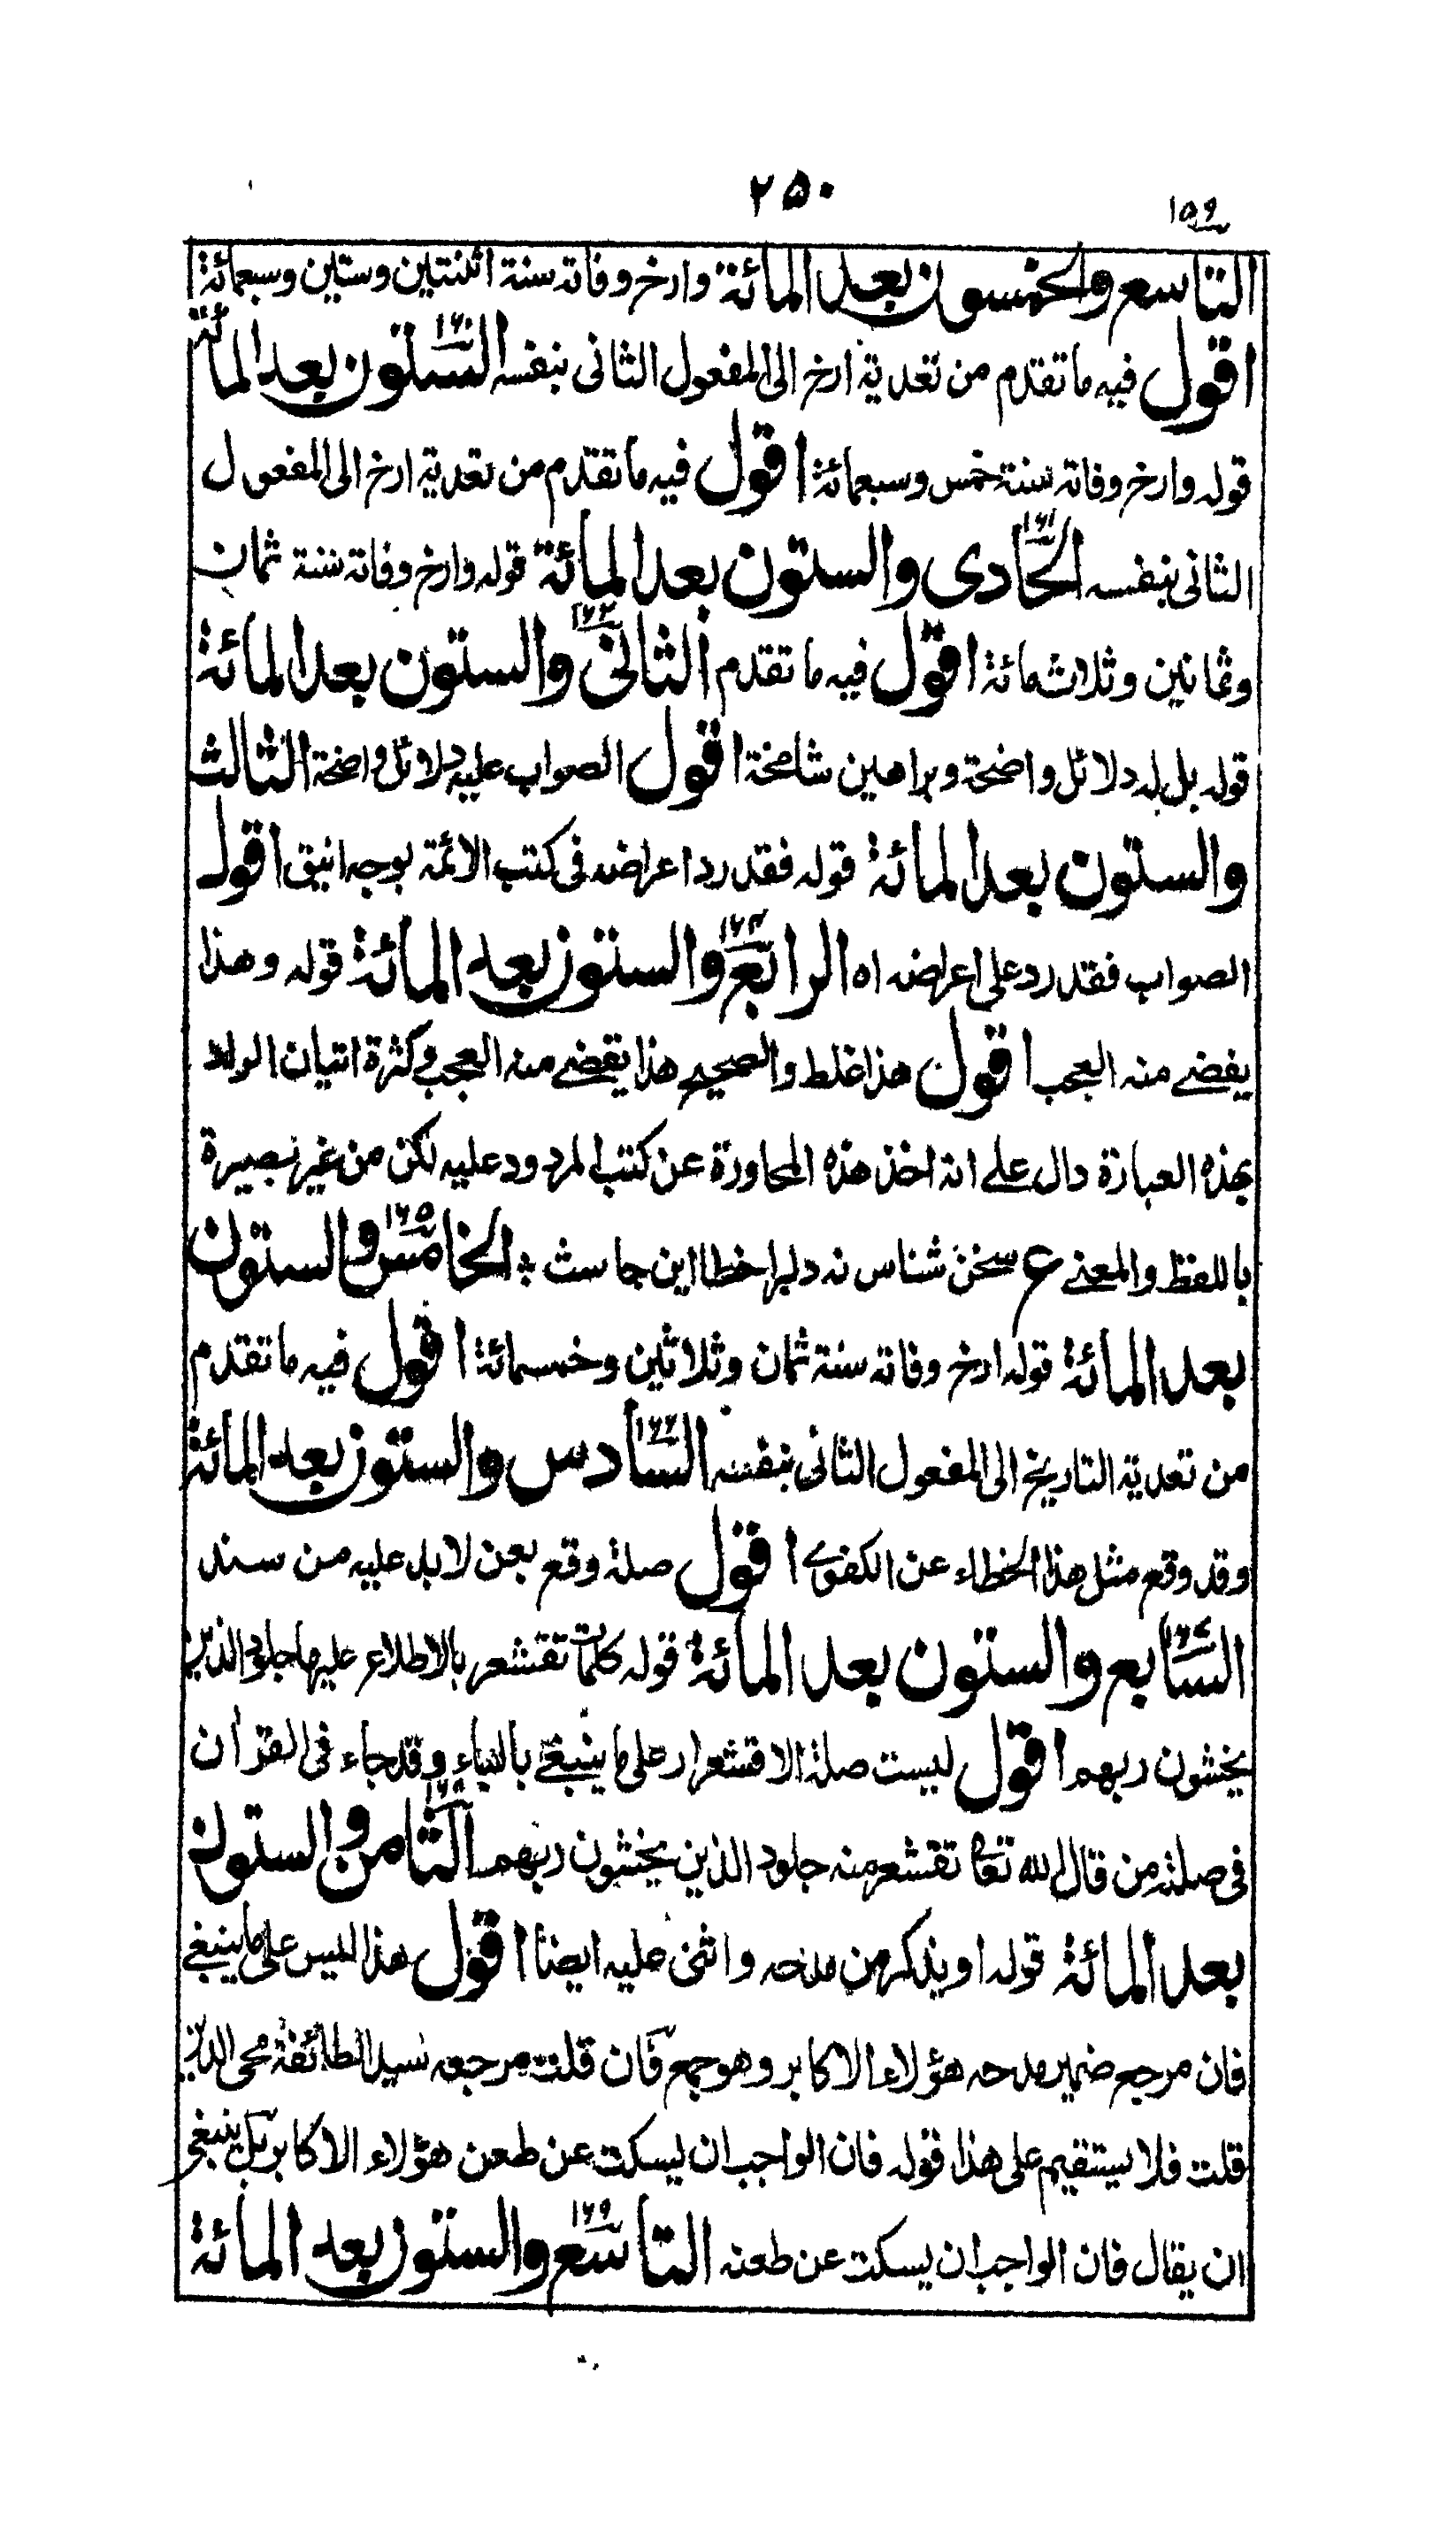 ٢٥٠
١٥٩
التاسع والخمسون بعد المائة وارخ وفاته سنة اثنتين وستين وسبعمائة
اقول فيه ما تقدم من تعدية ارخ الى المفعول الثانى بنفسه الستون بعد المائة ١٦٠
قوله وارخ وفاته سنة خمس وسبعمائة اقول فيه ما تقدم من تعدية ارخ الى المفعول
الثانى بنفسه الحادى والستون بعد المائة ١٦١ قوله وارخ وفاته سنة ثمان
وثمانين وثلاث مائة اقول فيه ما تقدم الثانى والستون بعد المائة ١٦٢
قوله بل له دلائل واضحة وبراهين شامخة اقول الصواب عليه دلائل واضحة الثالث
والستون بعد المائة قوله فقد رد اعراضه فى كتب الائمة بوجه انيق اقول
الصواب فقد رد على اعراضه اه الرابع والستون بعد المائة ١٦٤ قوله وهذا
يفضے منه العجب اقول هذا غلط والصحيح هذا يقضے منه العجب وكثرة اتيان الولد
بهذه العبارة دال علے انه اخذ هذه المحاورة عن كتب المردود عليه لكن من غير بصيرة
باللفظ والمعنے ع سخن شناس نه دلبرا خطا اين جا ست ؞ الخامس والستون ١٦٥
بعد المائة قوله ارخ وفاته سنة ثمان وثلاثين وخمسمائة اقول فيه ما تقدم
من تعدية التاريخ الى المفعول الثانى بنفسه السادس والستون بعد المائة ١٦٦
وقد وقع مثل هذا الخطاء عن الكفوے اقول صلة وقع بعن لا بد عليه من سند
السابع والستون بعد المائة ١٦٧ قوله كلمات تقشعر بالاطلاع عليها جلود الذين
يخشون ربهم اقول ليست صلة الاقشعرار على ما ينبغے بالباء وقد جاء فى القرآن
فى صلته من قال الله تعا تقشعر منه جلود الذين يخشون ربهم الثامن والستون ١٦٨
بعد المائة قوله او يذكر من مدحه واثنى عليه ايضا اقول هذا ليس على ما ينبغے
فان مرجع ضمير مدحه هؤلاء الاكابر وهو جمع فان قلت مرجعه سيد الطائفة محى الدين
قلت فلا يستقيم على هذا قوله فان الواجب ان يسكت عن طعن هؤلاء الاكابر بل ينبغى
ان يقال فان الواجب ان يسكت عن طعنه التاسع والستون بعد المائة ١٦٩